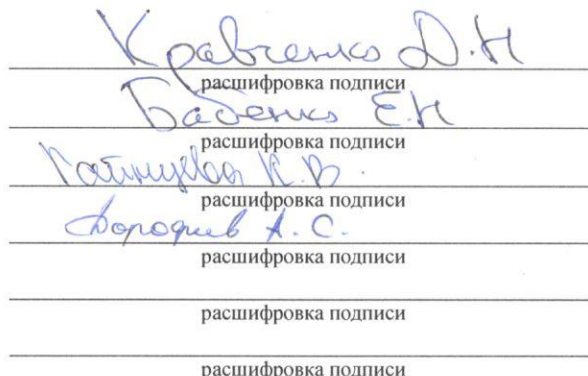 Кравченко Д.Н
расшифровка подписи
Бабенко Е.Н
расшифровка подписи
К.В.
расшифровка подписи
Дорофеев А.С.
расшифровка подписи
расшифровка подписи
расшифровка подписи